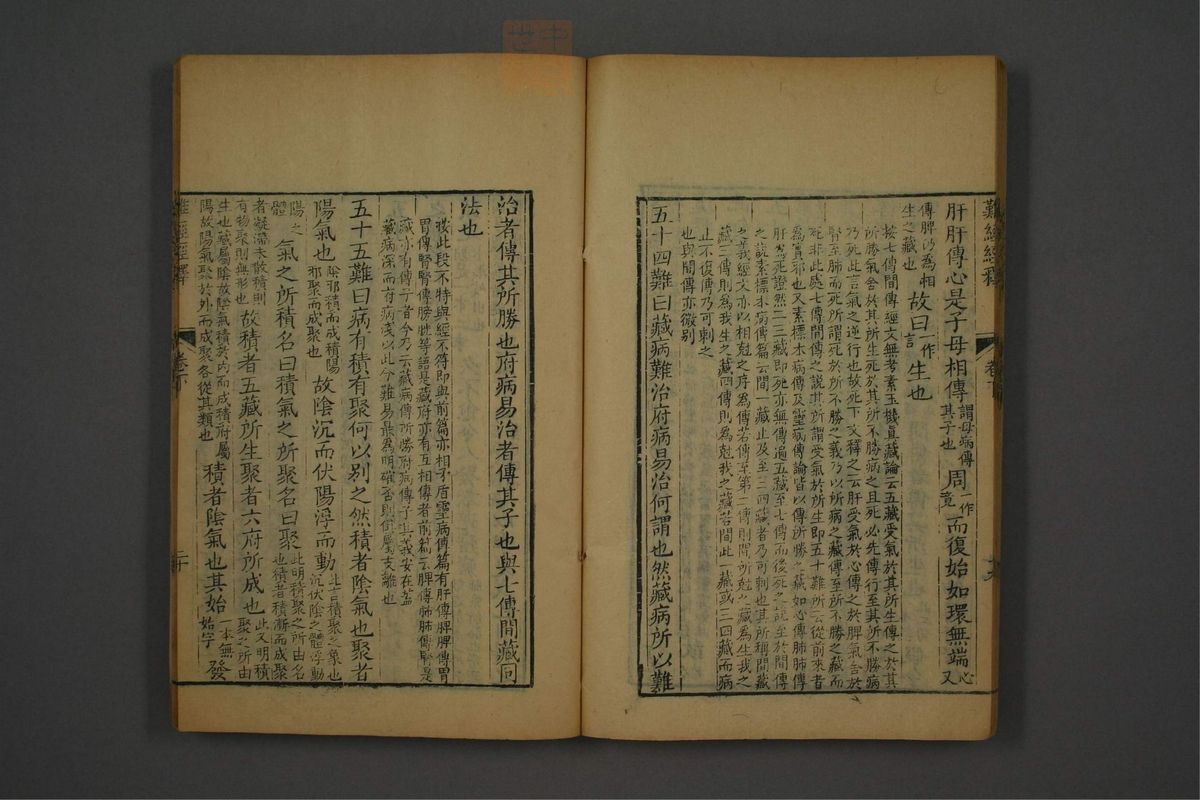 難經經釋
卷下
十九
肝肝傳心是子母相傳謂母病傳其子也周一作竟而復始如環無端心又
傳脾仍為相生之藏也故曰一作言生也
按七傳間傳經文無考素玉機真藏論云五藏受氣於其所生傳之於其
所勝氣舍於其所生死於其所不勝病之且死必先傳行至其所不勝病
乃死此言氣之逆行也故死下文釋之云肝受氣於心傳之於脾氣舍於
腎至肺而死所謂死於所不勝之義乃以所病之藏傳至所不勝之藏而
死非此處七傳間傳之說其所謂受氣於所生即五十難所云從前來者
為實邪也又素標本病傳及靈病傳論皆以傳所勝之藏如心傳肺肺傳
肝為死證然二三藏即死亦無傳遍五藏至七傳而後死之說至於間傳
之說素標本病傳篇云間一藏止及至三四藏者乃可刺也其所稱間藏
之義經文亦以相尅之序為傳若傳至第二傳則間所尅之藏為生我之
藏三傳則為我生之藏四傳則為尅我之藏若間此一藏或三四藏而病
止不復傳乃可刺之
也與間傳亦微别
五十四難曰藏病難治府病易治何謂也然藏病所以難
治者傳其所勝也府病易治者傳其子也與七傳間藏同
法也
按此段不特與經不符即與前篇亦相矛盾靈病傳篇有肝傳脾脾傳胃
胃傳腎腎傳膀胱等語是藏府亦有互相傳者前篇云脾傳肺肺傳腎是
藏亦有傳子者今乃云藏病傳所勝府病傳子其義安在蓋
藏病深而府病淺以此分難易最為明確否則銜屬支離也
五十五難曰病有積有聚何以别之然積者陰氣也聚者
陽氣也陰邪積而成積陽邪聚而成聚也故陰沉而伏陽浮而動此言積聚之象也沉伏陰之體浮動
陽之體氣之所積名曰積氣之所聚名曰聚此明積聚之所由名也積者積漸而成聚
者凝滯未散積則有物聚則無形也故積者五藏所生聚者六府所成也此又明積聚之所由
生也藏屬陰故陰氣積於內而成積府屬陽故陽氣聚於外而成聚各從其類也積者陰氣也其始一本無始字發
難經經釋
卷下
二十